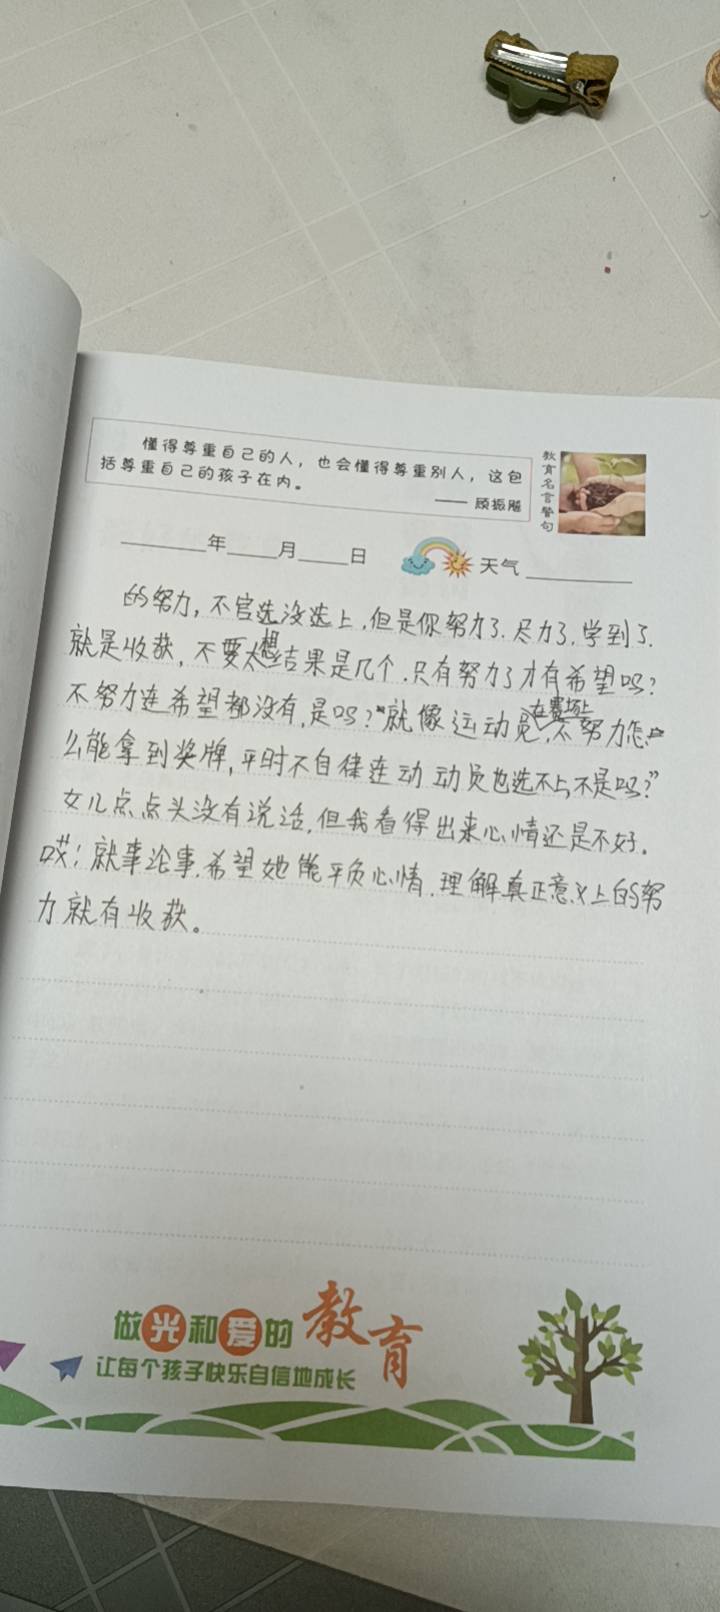 懂得尊重自己的人，也会懂得尊重别人，这包
括尊重自己的孩子在内。
—— 顾振飚
教育名言警句
年 月 日 天气
的努力，不官选没选上，但是你努力了，尽力了，学到了，
就是收获，不要太想结果是几个，只有努力了才有希望吗？
不努力连希望都没有，是吗？"就像运动员，在赛场上不努力怎
么能拿到奖牌，平时不自律连动动员也选不上，不是吗？"
女儿点点头没有说话，但我看得出来心情还是不好。
哎！就事论事，希望她能平负心情，理解真正意义上的努
力就有收获。
做光和爱的教育
让每个孩子快乐自信地成长